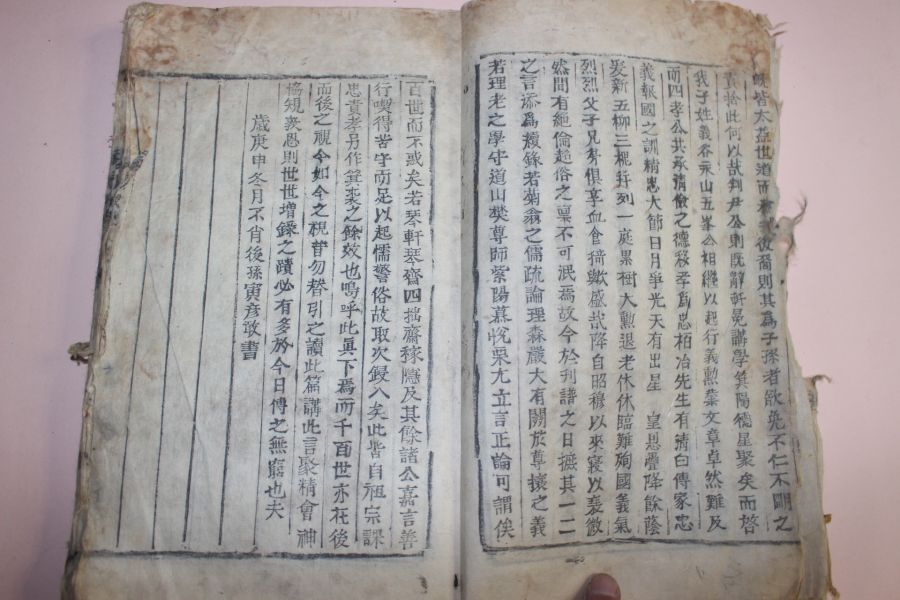 皆太益世道而 後裔則其爲子孫者欲免不仁不明之
責捨此何以哉判尹公則旣靜軒冕講學箕陽德星聚矣而啓
我子姓義谷永山五峯公相繼以起行義勲業文章卓然難及
而四孝公共承淸儉之德移孝爲忠栢冶先生有淸白傳家忠
義報國之訓精忠大節日月爭光天有出星 皇恩疊降餘蔭
爰新五柳三槐幷列一庭果樹大勲退老休休臨難殉國義氣
烈烈父子兄弟俱享血食猗歟盛哉降自昭穆以來寢以衰微
然間有絶倫超俗之禀不可泯焉故今於刊譜之日摭其一二
之言添爲複錄若菊翁之儒疏論理森嚴大有關於尊攘之義
若理老之學守道山樊尊師紫陽慕悅栗尤立言正論可謂俟
百世而不或矣若琴軒琴齋四拙齋稼隱及其餘諸公嘉言善
行喫得苦守而足以起懦警俗故取次鋟入矣此皆自祖宗課
忠責孝另作箕裘之餘效也嗚呼此眞下焉而千百世亦在後
而後之視今如今之視昔勿替引之讀此篇講此言聚精會神
協規衷恩則世世增錄之蹟必有多於今日傳之無窮也夫
歲庚申冬月不肖後孫寅彦敢書